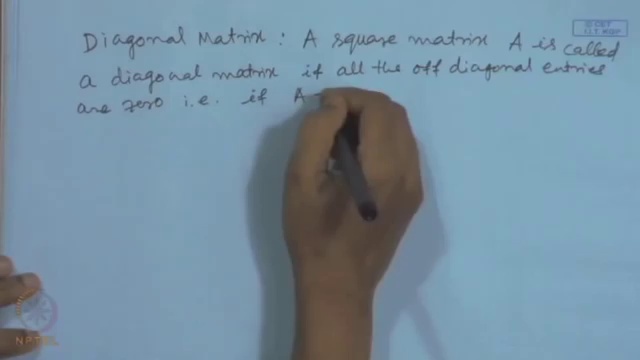 © CET
I.I.T. KGP
Diagonal Matrix : A square matrix A is called
a diagonal matrix if all the off diagonal entries
are zero i.e. if A
NPTEL